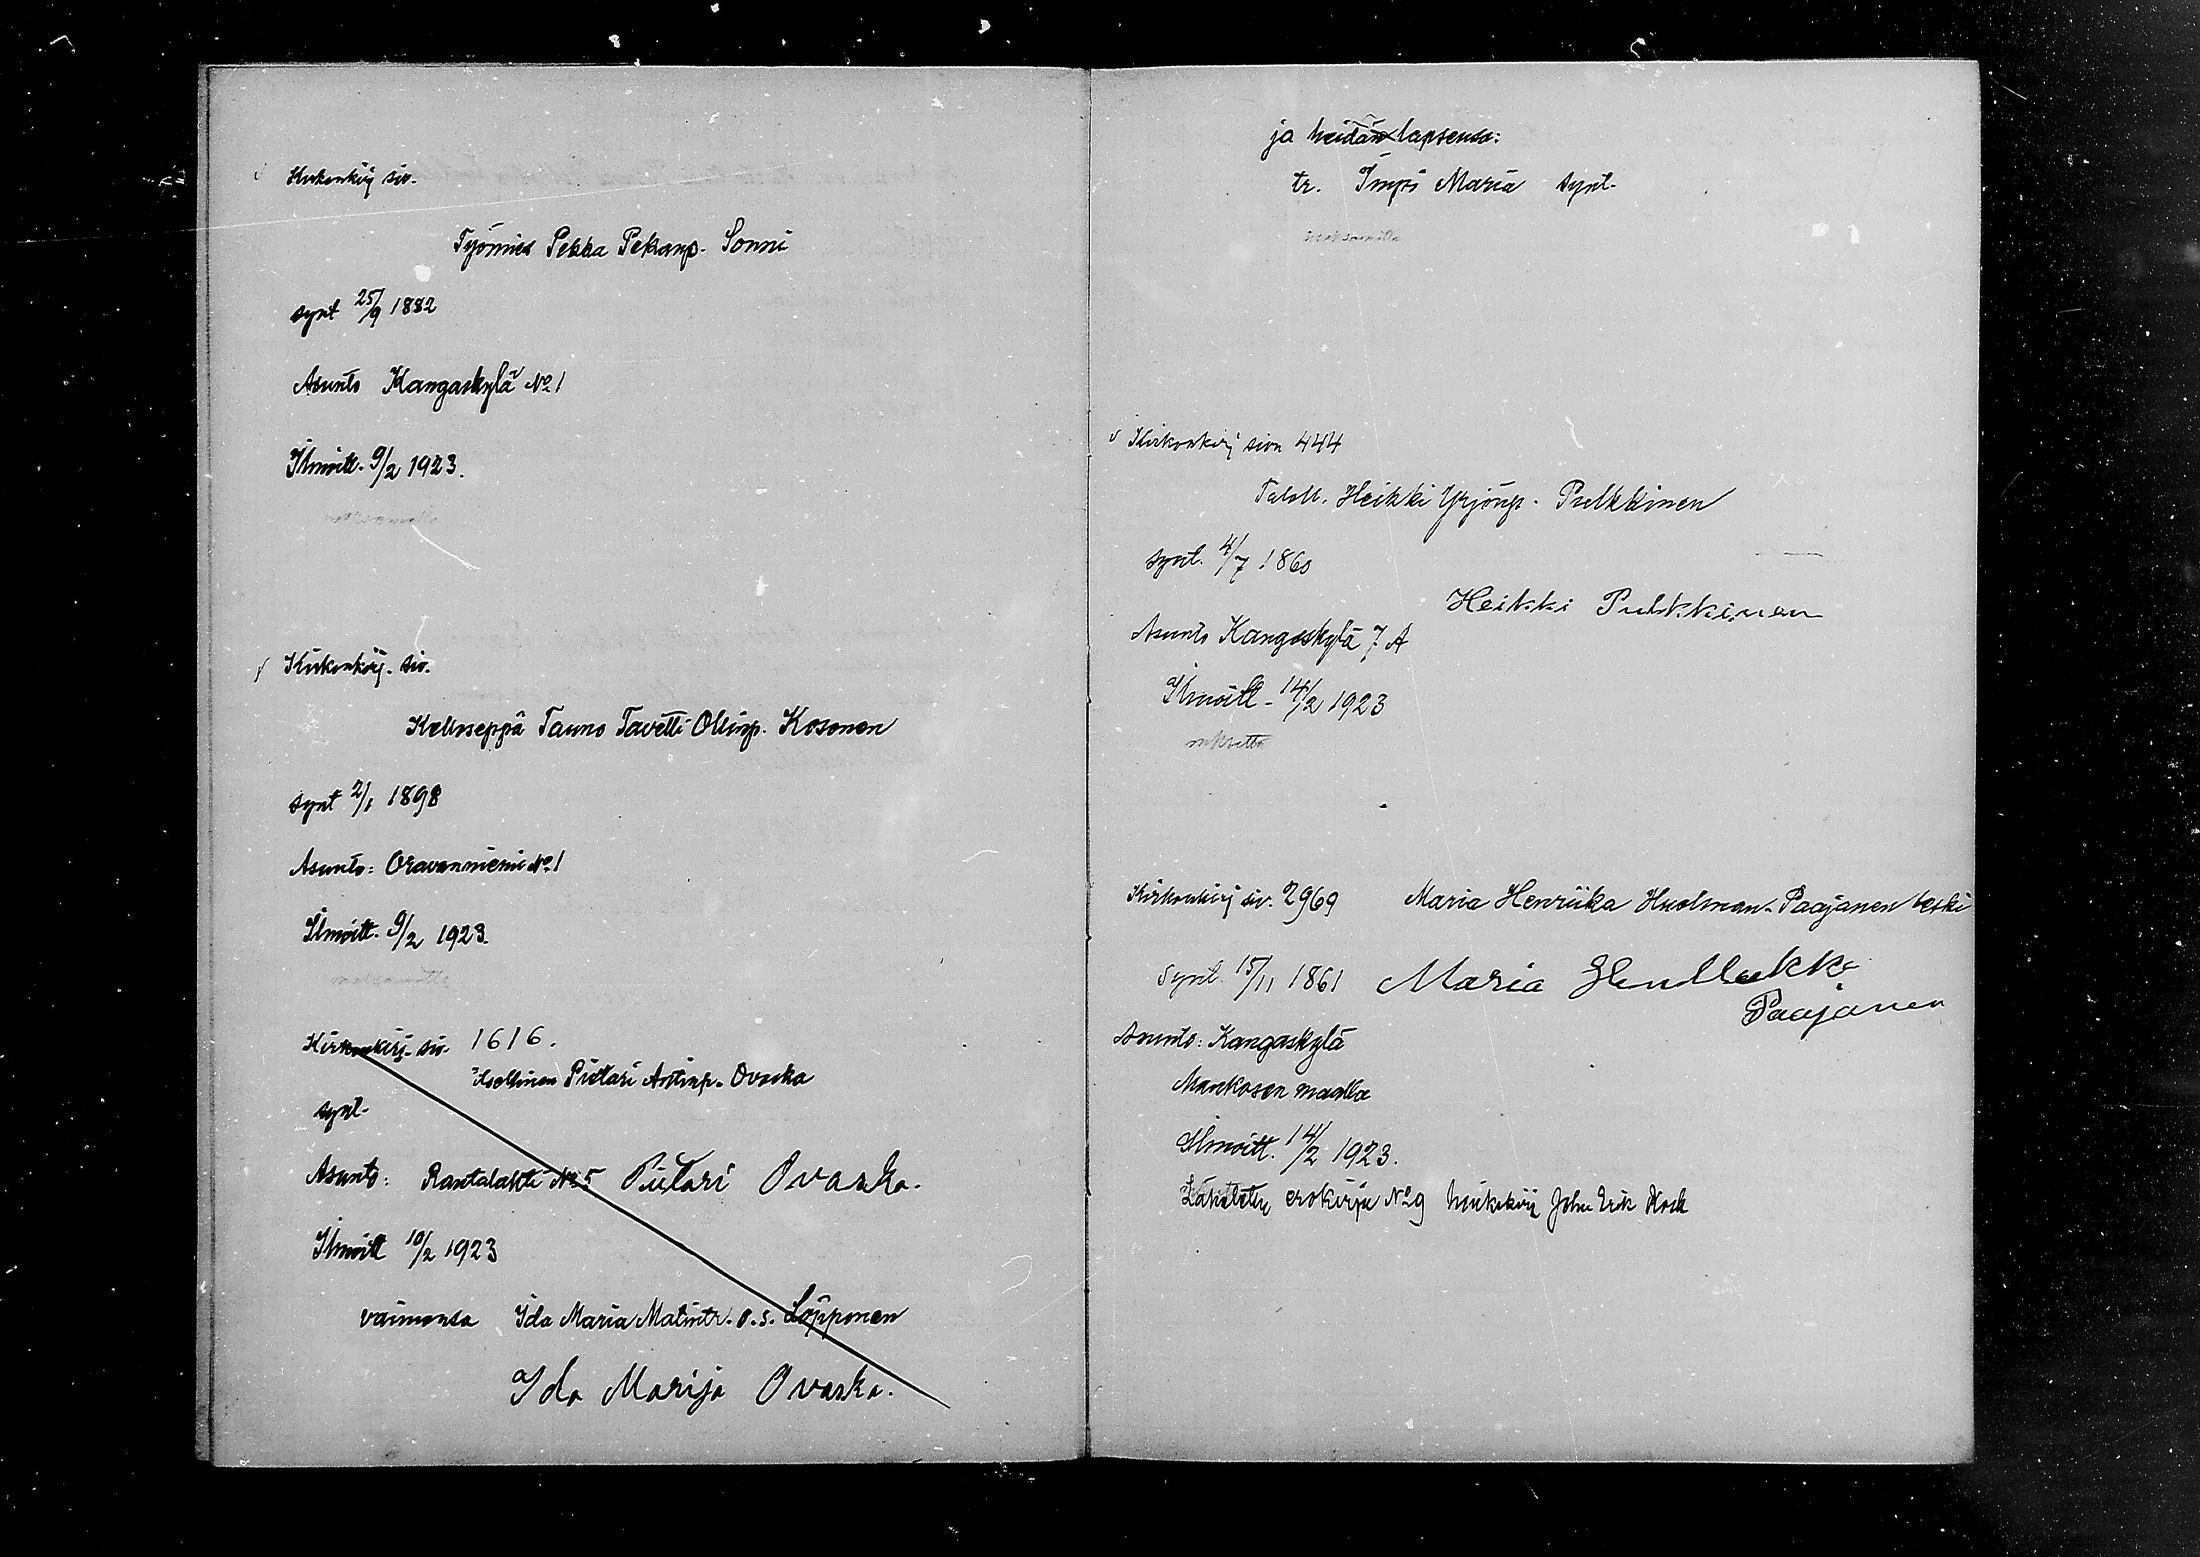 Kirkonkirj siv.
Työmies Pekka Pekanp. Sonni
synt 25/9 1882
Asunto Kangaskylä No 1
Ilmoitt. 9/2 1923.
Kirkonkirj. siv.
Kelloseppä Tauno Tavetti Ollinp. Kosonen
synt 2/1 1898
Asunto: Oravanniemi No 1
Ilmoitt. 9/2 1923.
Kirkonkirj. siv. 1616.
Itsellinen Pietari Antinp. Ovaska
synt.
Asunto: Rantalahti No 5 Pietari Ovaska.
Ilmoitt 10/2 1923
vaimonsa Ida Maria Matintr. o.s. Löpponen
Ida Marija Ovaska.
ja heidän lapsensa:
tr. Impi Maria synt.
Kirkonkirj sivu 444
Taloll. Heikki Yrjönp. Pulkkinen
synt. 4/7 1860
Heikki Pulkkinen
Asunto Kangaskylä 7 A
Ilmoitt. 14/2 1923
Kirkonkirj siv. 2969 Maria Henriika Huolman. Paajanen leski
Synt. 15/11 1861 Maria
Paajanen
Asunto: Kangaskylä
Maukosen maalla
Ilmoitt. 14/2 1923.
Lähetetty erokirja No 9 John Erik